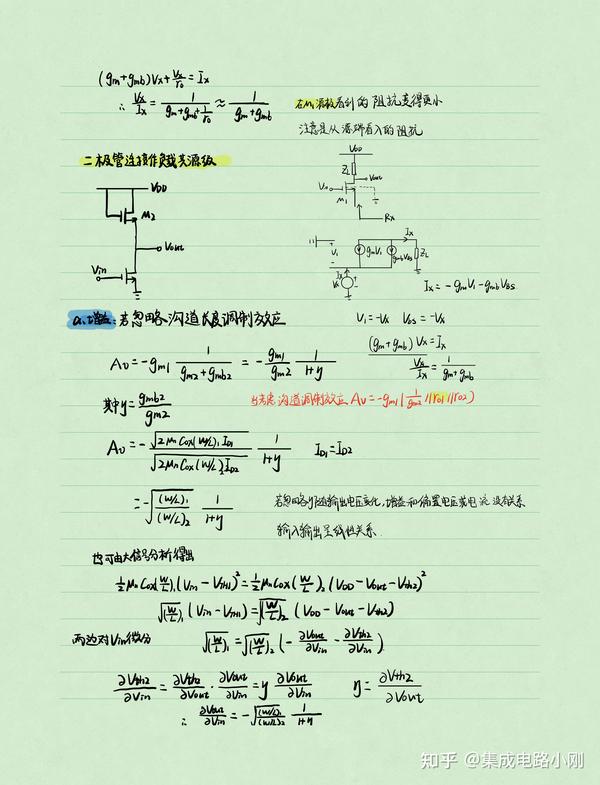 (gm+gmb)Vx+Vx/ro=Ix
∴ Vx/Ix = 1/(gm+gmb+1/ro) ≈ 1/(gm+gmb)
在M1源极看到的阻抗变得更小
注意是从源端看入的阻抗
二极管连接作负载共源级
VDD
M2
Vout
Vin
VDD
ZL
Vout
Vin
M1
Rx
V1
gmV1
gmbVbs
Ix
ZL
Vx
Ix=-gmV1-gmbVBS
V1=-Vx VBS=-Vx
(gm+gmb)Vx=Ix
Vx/Ix = 1/(gm+gmb)
a.增益:若忽略沟道长度调制效应
Av=-gm1 1/(gm2+gmb2) = -gm1/gm2 1/(1+η)
其中η=gmb2/gm2
当考虑沟道调制效应 Av=-gm1(1/gm2//ro1//ro2)
Av=-√(2μnCox(W/L)1ID1)/√(2μnCox(W/L)2ID2) 1/(1+η) ID1=ID2
=-√((W/L)1/(W/L)2) 1/(1+η)
若忽略η随输出电压变化,增益和偏置电压或电流没有关系
输入输出呈线性关系.
也可由大信号分析得出
½μnCox(W/L)1(Vin-VTH1)²=½μnCox(W/L)2(VDD-Vout-Vth2)²
√(W/L)1(Vin-VTH1)=√(W/L)2(VDD-Vout-Vth2)
两边对Vin微分 √(W/L)1=√(W/L)2(-∂Vout/∂Vin-∂Vth2/∂Vin)
∂Vth2/∂Vin=∂Vth2/∂Vout·∂Vout/∂Vin=η ∂Vout/∂Vin η=∂Vth2/∂Vout
∴ ∂Vout/∂Vin=-√((W/L)1/(W/L)2) 1/(1+η)
知乎 @集成电路小刚